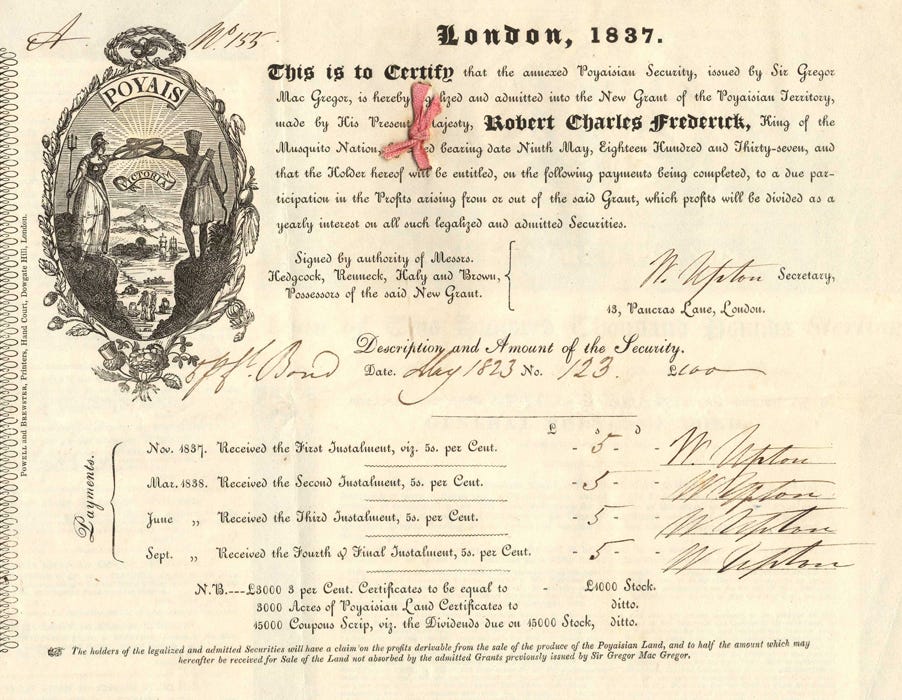 A
No. 155
POYAIS
VICTORIA
London, 1837.
This is to Certify that the annexed Poyaisian Security, issued by Sir Gregor
Mac Gregor, is hereby legalized and admitted into the New Grant of the Poyaisian Territory,
made by His Present Majesty, Robert Charles Frederick, King of the
Musquito Nation, bearing date Ninth May, Eighteen Hundred and Thirty-seven, and
that the Holder hereof will be entitled, on the following payments being completed, to a due par-
ticipation in the Profits arising from or out of the said Grant, which profits will be divided as a
yearly interest on all such legalized and admitted Securities.
Signed by authority of Messrs.
Hedgcock, Renneck, Haly and Brown,
Possessors of the said New Grant.
W. Upton Secretary,
43, Pancras Lane, London.
Description and Amount of the Security.
Bond Date. May 1823 No. 123. £100
£ s d
Payments.
Nov. 1837. Received the First Instalment, viz. 5s. per Cent. - 5 - - W. Upton
Mar. 1838. Received the Second Instalment, 5s. per Cent. - 5 - - W Upton
June ,, Received the Third Instalment, 5s. per Cent. - 5 - - W Upton
Sept. ,, Received the Fourth & Final Instalment, 5s. per Cent. - 5 - - W Upton
N.B.---£3000 3 per Cent. Certificates to be equal to - £1000 Stock.
3000 Acres of Poyaisian Land Certificates to ditto.
15000 Coupons Scrip, viz. the Dividends due on 15000 Stock, ditto.
The holders of the legalized and admitted Securities will have a claim on the profits derivable from the sale of the produce of the Poyaisian Land, and to half the amount which may
hereafter be received for Sale of the Land not absorbed by the admitted Grants previously issued by Sir Gregor Mac Gregor.
POWELL AND BREWSTER, Printers, Hand Court, Dowgate Hill, London.